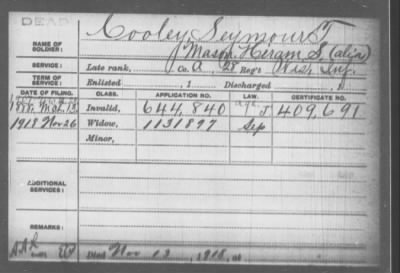 DEAD
Cooley, Seymour T
NAME OF SOLDIER: Mason, Hiram S. (alias)
SERVICE: Late rank, Co. A, 28 Reg't Wis. Inf.
TERM OF SERVICE: Enlisted , 1 Discharged , 1
DATE OF FILING. CLASS. APPLICATION NO. LAW. CERTIFICATE NO.
1888. Mch. 13 Invalid, 644,840 J 409,691
1918 Nov 26 Widow, 1131897 Sep
Minor,
ADDITIONAL SERVICES:
REMARKS:
Died Nov 13, 1918, at